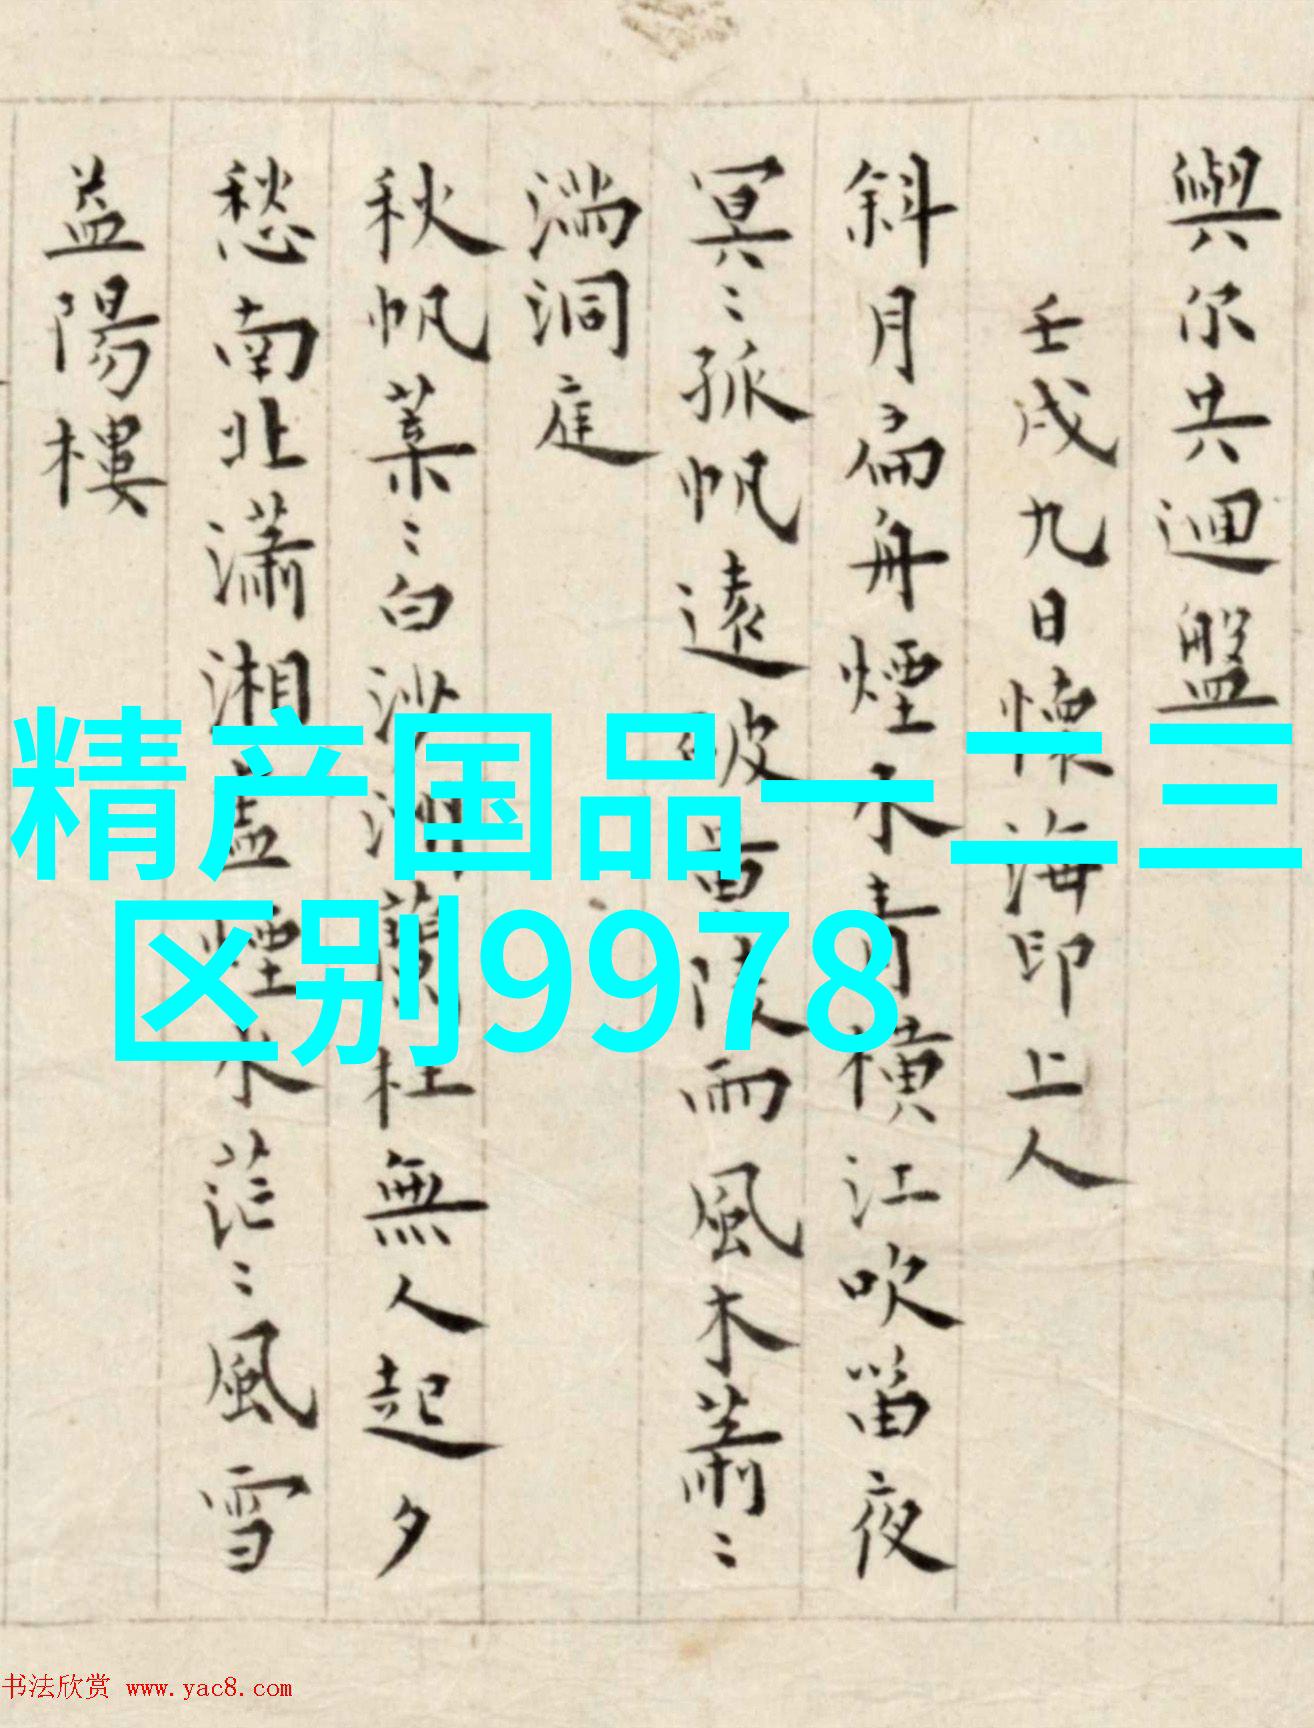 與尔共迴盤
壬戌九日懷海印上人
斜月扁舟煙水青橫江吹笛夜
冥〻孤帆遠破黄陵雨風木蕭〻
湍洞庭
秋帆葉〻白沙洲蘭杜無人起夕
愁南北瀟湘盡煙水茫〻風雪
益陽樓
精产国品一二三
区别9978
书法欣赏 www.yac8.com